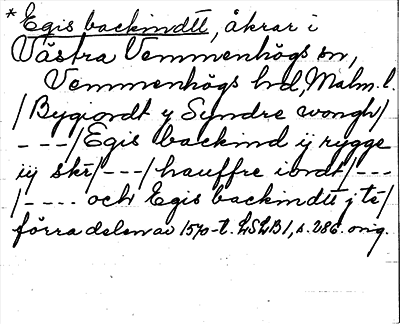 * Egis backindtt, åkrar i
Västra Vemmenhögs sn,
Vemmenhögs hd, Malm. l.
/Bygiordt y Syndre wongh/
- - -/Egis backind ij rygge
iij skr/- - -/hauffre iordt/- - -
/- - - - och Egis backindtt j te/
förra delen av 1570-t. LSLB1, s. 286. orig.